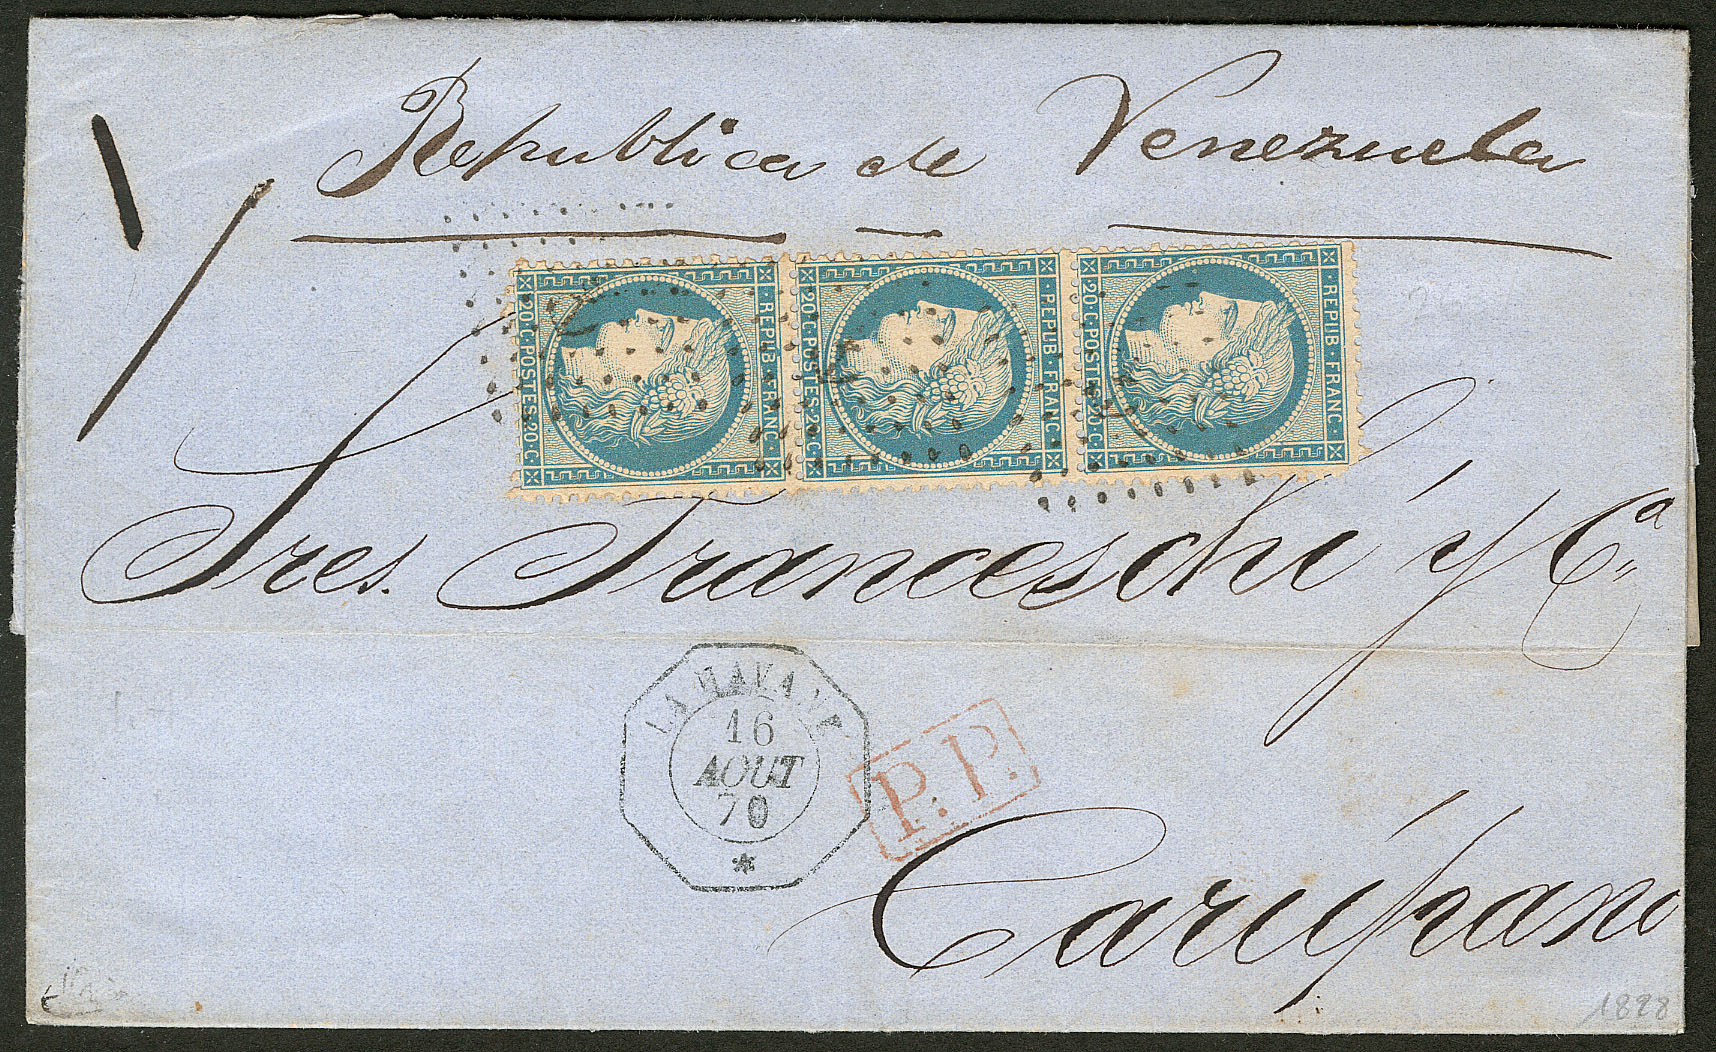 Republica de Venezuela
REPUB · FRANC ·
20 · C · POSTES · 20 · C ·
REPUB · FRANC ·
20 · C · POSTES · 20 · C ·
REPUB · FRANC ·
20 · C · POSTES · 20 · C ·
Sres. Franceschi y Cª
LA HAVANE
16
AOUT
70
*
P.P.
Carúpano
1828